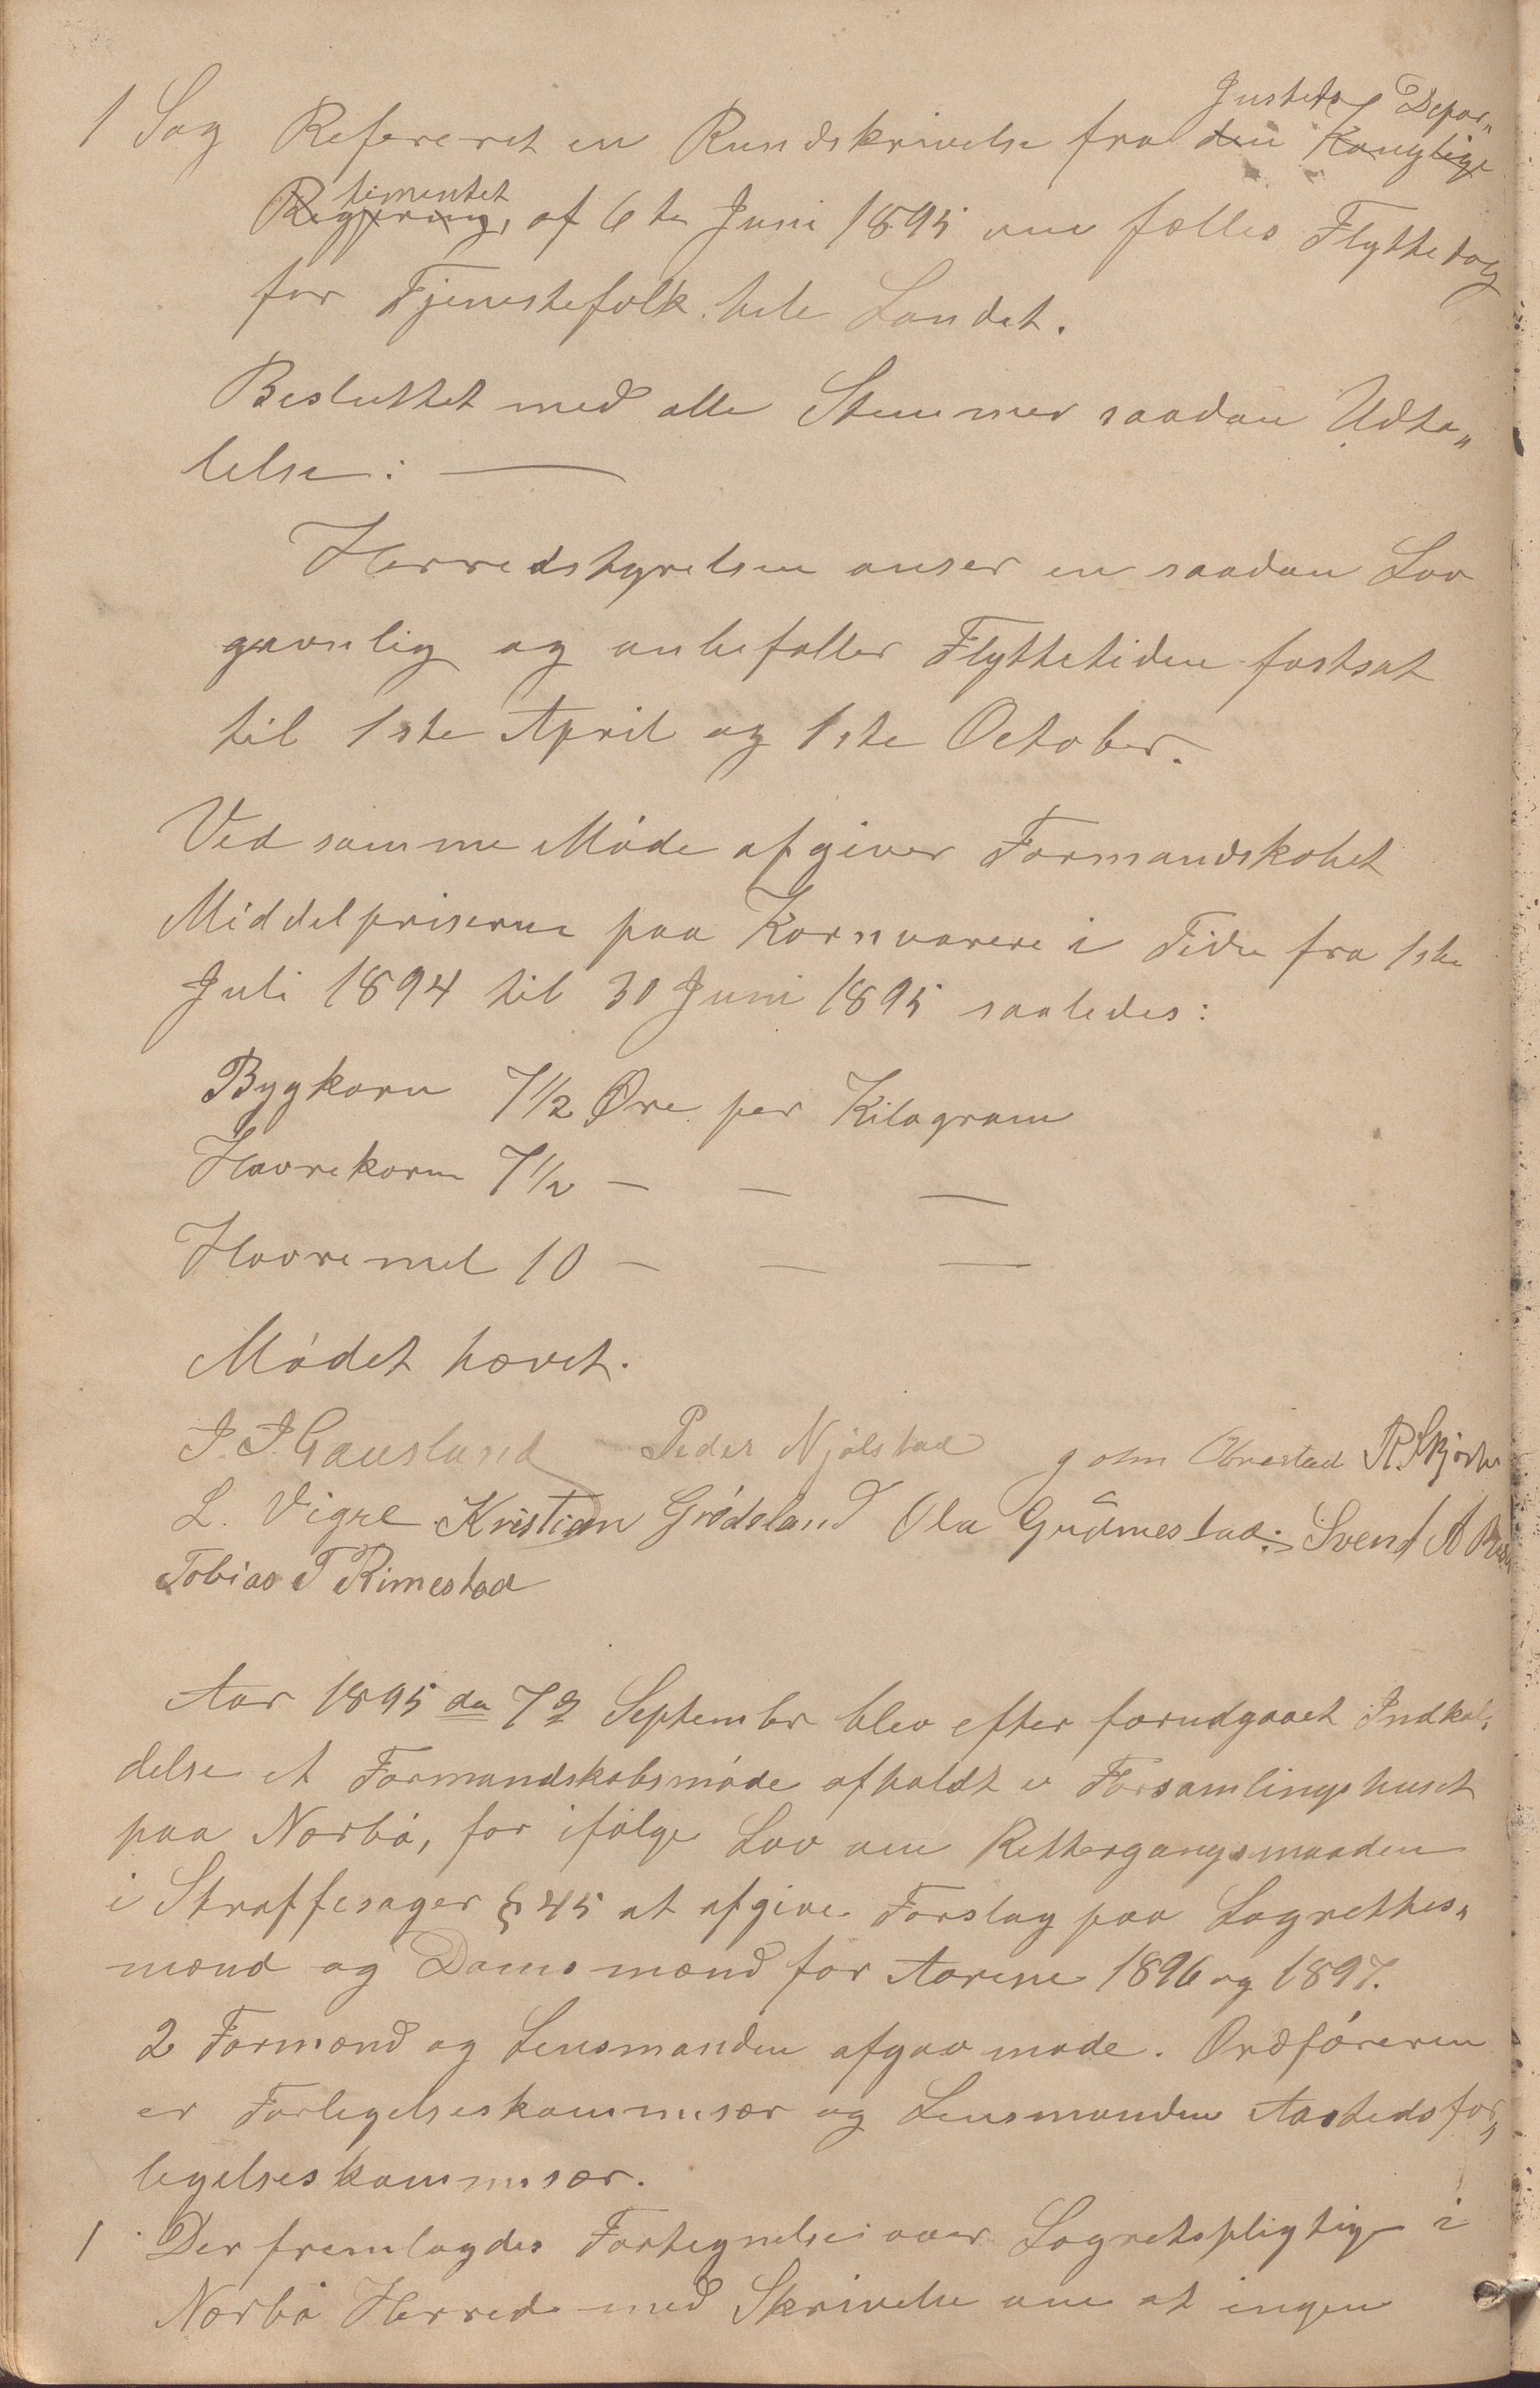 1 Sag Refereret en Rundskrivelse fra den Kongelige Justits Depar„
Regjering, timentet af 6te Juni 1895 om fælles Flyttedag
for Tjenestefolk hele Landet.
Besluttet med alle Stemmer saadan Udta„
lelse: —
Herredstyrelsen anser en saadan Lov
gavnlig og anbefaller Flyttetiden fastsat
til 1ste April og 1ste October.
Ved samme Møde afgiver Formandskabet
Middelpriserne paa Kornvarer i Tiden fra 1ste
Juli 1894 til 30 Juni 1895 saaledes:
Bygkorn 7½ Øre per Kilogram
Havrekorn 7½ — — —
Havremel 10 — — —
Mødet hævet.
J. J. Gausland Peder Njølstad John Obrestad R. Skjørten
L. Vigre Kristian Grødeland Ola Gudmestad Svend A
Tobias T Rimestad
Aar 1895 den 7de September blev efter forudgaaet Indkal„
delse et Formandskabsmøde afholdt i Forsamlingshuset
paa Nærbø, for ifølge Lov om Rettergangsmaaden
i Straffesager § 45 at afgive Forslag paa Lagrettes„
mænd og Domsmænd for Aarene 1896 og 1897.
2 Formænd og Lensmanden afgav møde. Ordføreren
er Forligelseskommisær og Lensmanden Aastedsfor„
legelseskommisær.
1 Der fremlagdes Fortegnelse over Lagretspligtige i
Nærbø Herred med Skrivelse om at ingen